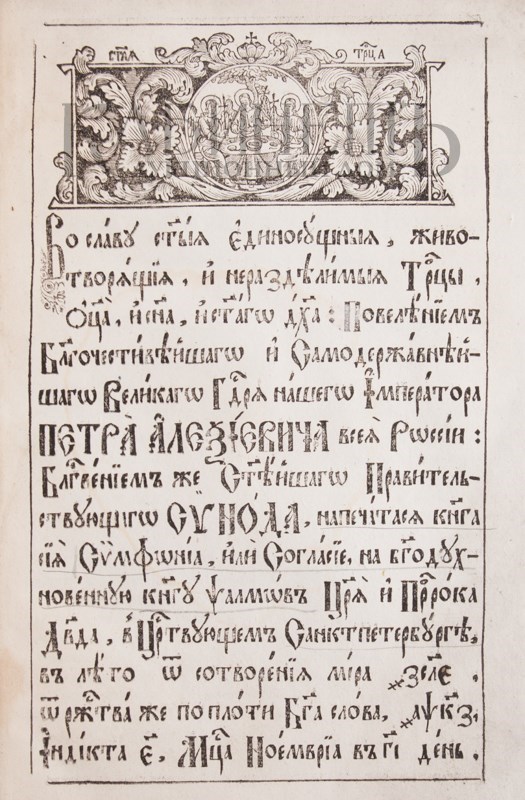 ст҃ыѧ трⷪ҇ца
Во сла́ву ст҃ы́ѧ є҆диносꙋ́щныѧ, живо-
творѧ́щїѧ, и҆ нераздѣли́мыѧ Трⷪ҇цы,
Ѻ҆ц҃а̀, и҆ сн҃а, и҆ ст҃а́гѡ дх҃а: Повелѣ́нїемъ
Бл҃гочести́вѣйшагѡ и҆ Самодержа́внѣй-
шагѡ Вели́кагѡ Гдⷭ҇рѧ на́шегѡ І҆мпера́тора
ПЕТРА̀ А҆ЛЕѮІ́ЕВИЧА всеѧ̀ Рѡссі́и:
Блгⷭ҇ве́нїемъ же Ст҃ѣ́йшагѡ Прави́тель-
ствꙋющагѡ СѴНО́ДА, напеча́тасѧ кни́га
сїѧ̀ Сѷмфѡ́нїа, и҆лѝ Согла́сїе, на бг҃одꙋх-
нове́ннꙋю кни́гꙋ ѱалмѡ́въ Цр҃ѧ̀ и҆ Прⷪ҇ро́ка
Дв҃да, в̾ Црⷭ҇твꙋющемъ Санктпетербꙋ́ргѣ,
въ лѣ́то ѿ сотворе́нїѧ мі́ра ҂зсл҃є,
ѿ ржⷭ҇тва́ же по пло́ти Бг҃а сло́ва, ҂аѱк҃з,
І҆нді́кта є҃, Мцⷭ҇а Ное́мврїа въ г҃і де́нь.